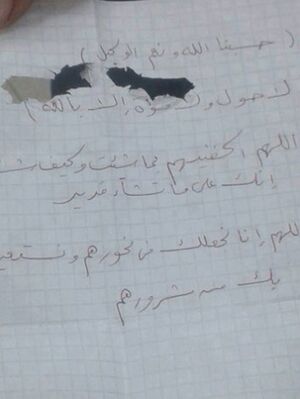 ( حسبنا الله ونعم الوكيل )
لا حول ولا قوة إلا بالله )
اللهم اكفنيهم بما شئت وكيف شئت
إنك على ما تشاء قدير
اللهم إنا نجعلك في نحورهم ونستعيذ
بك من شرورهم